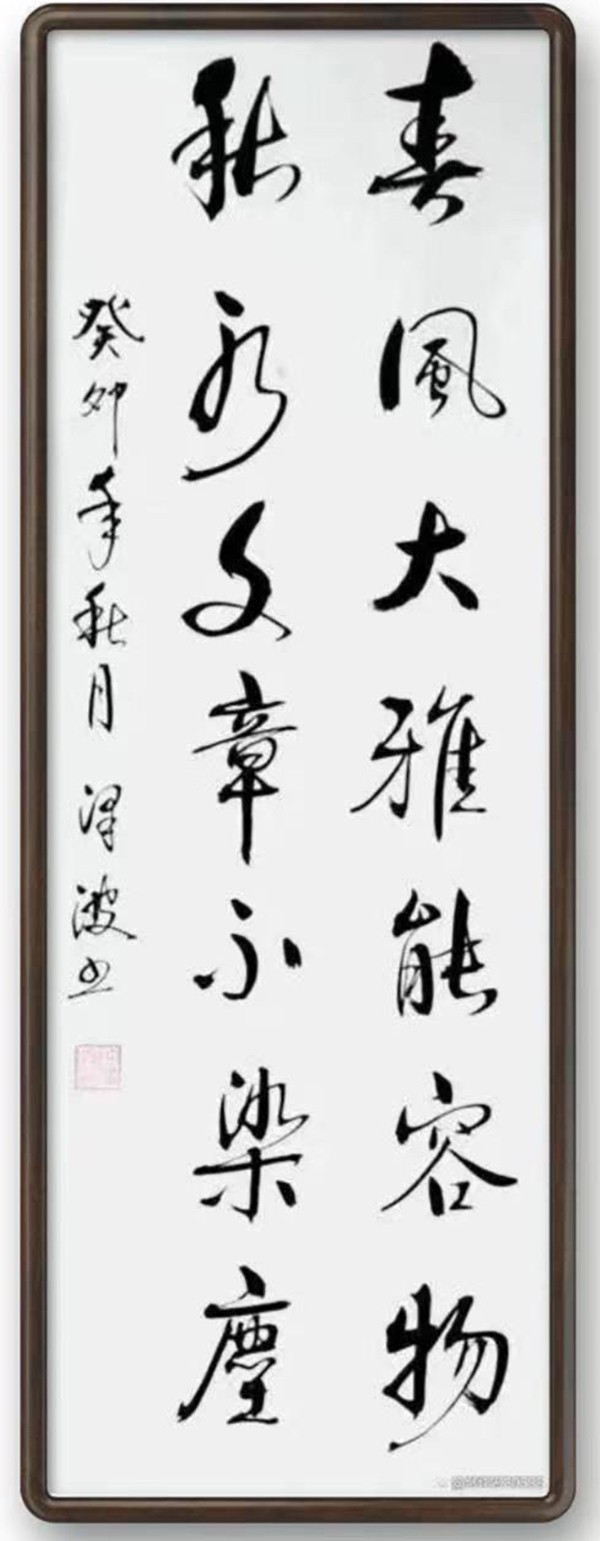 春風大雅能容物
秋水文章不染塵
癸卯年秋月 澤波书